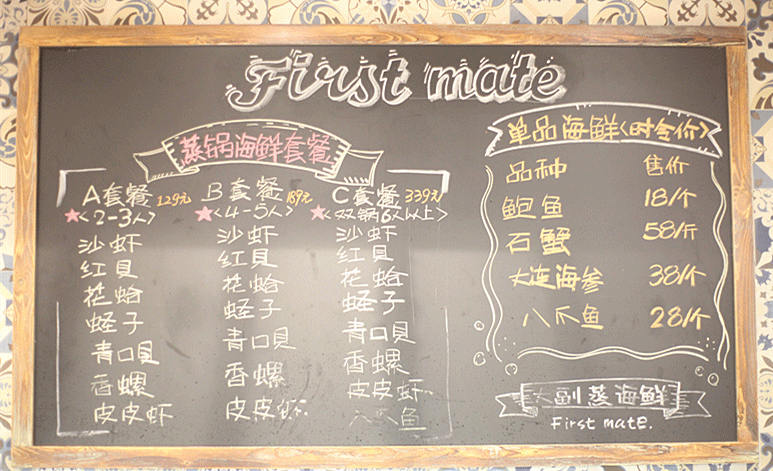 First mate
蒸锅海鲜套餐
A套餐 129元
★<2-3人>
沙虾
红贝
花蛤
蛏子
青口贝
香螺
皮皮虾
B套餐 189元
★<4-5人>
沙虾
红贝
花蛤
蛏子
青口贝
香螺
皮皮虾
C套餐 339元
★<双锅6人以上>
沙虾
红贝
花蛤
蛏子
青口贝
香螺
皮皮虾
八爪鱼
单品海鲜<时令价>
品种 售价
鲍鱼 18/个
石蟹 58/斤
大连海参 38/个
八爪鱼 28/个
大副蒸海鲜
First mate.